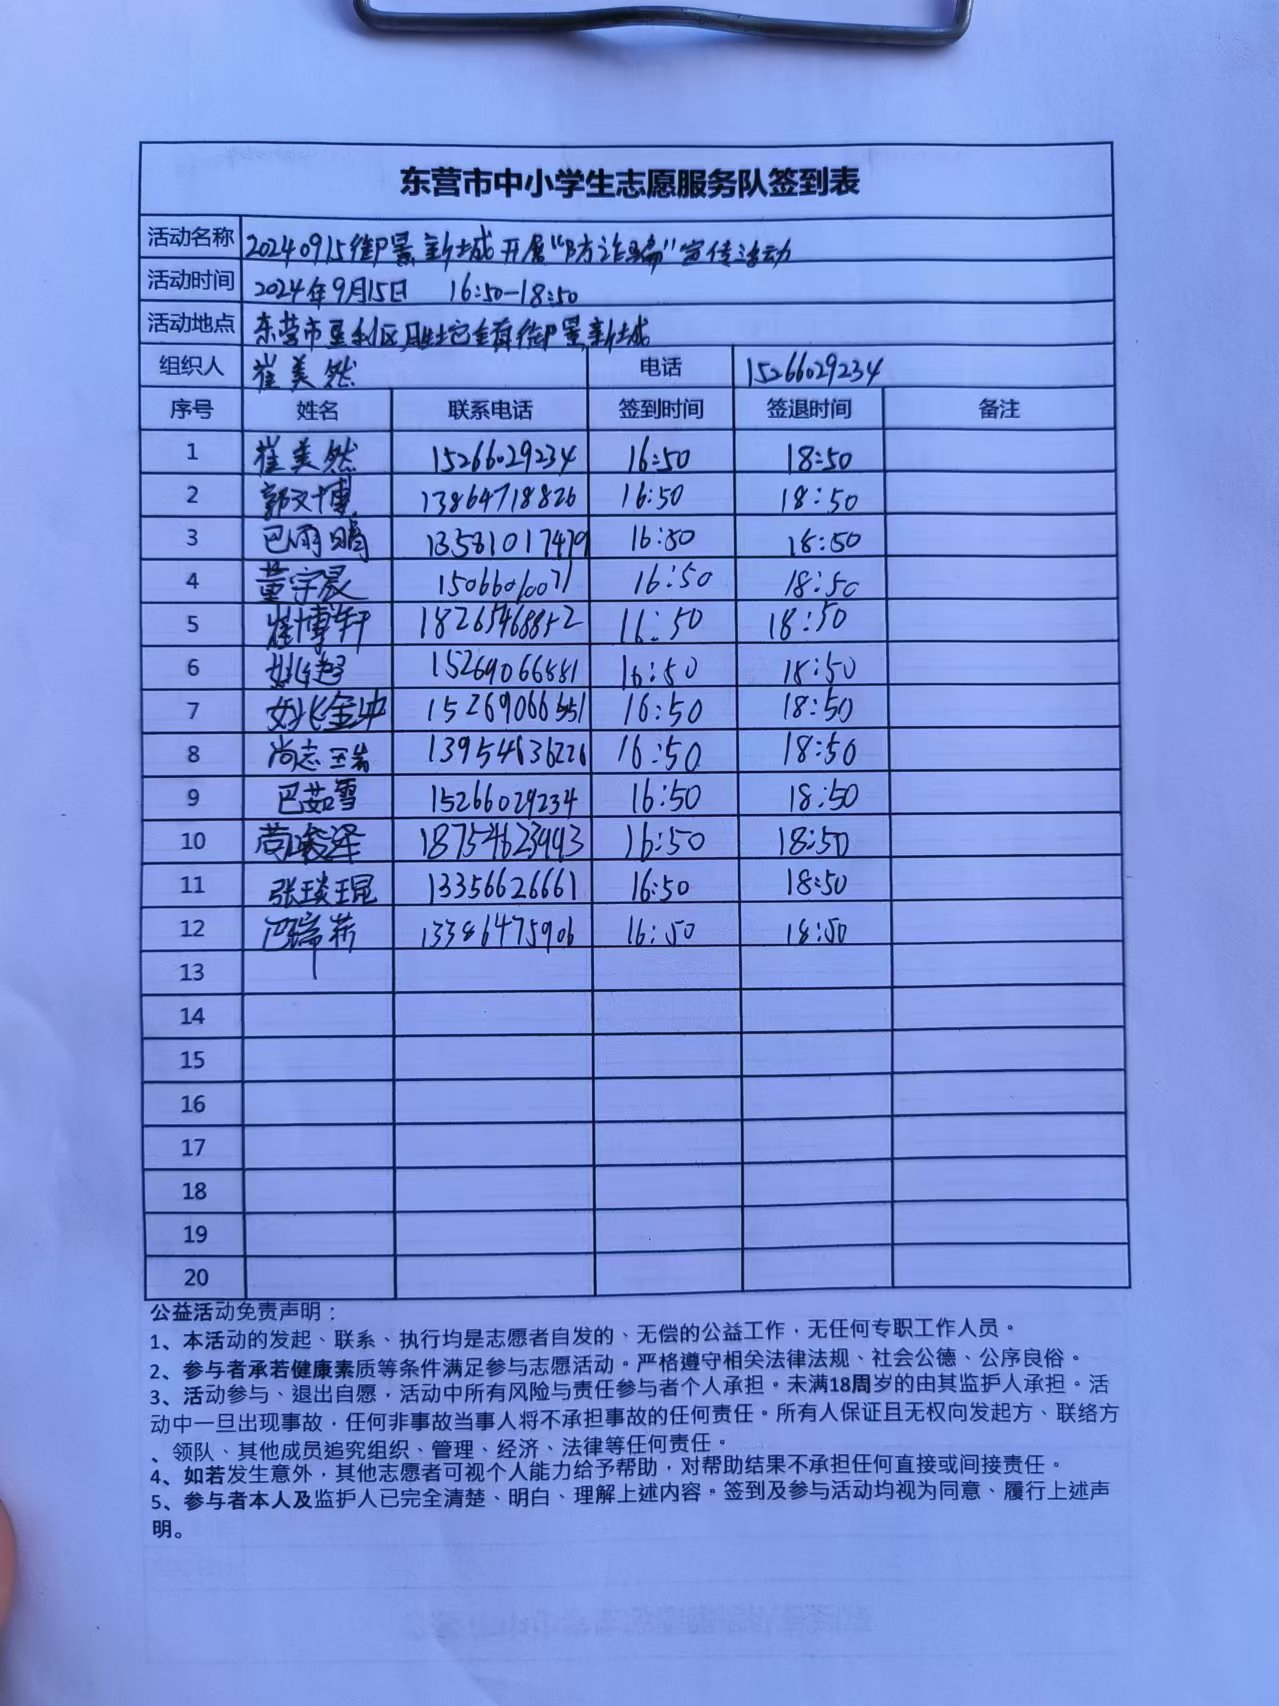 东营市中小学生志愿服务队签到表
活动名称 20240915御景新城开展“防诈骗”宣传活动
活动时间 2024年9月15日 16:50-18:50
活动地点 东营市垦利区胜坨镇御景新城
组织人 崔美然 电话 15266029234
序号 姓名 联系电话 签到时间 签退时间 备注
1 崔美然 15266029234 16:50 18:50
2 郭文博 13864718826 16:50 18:50
3 巴雨晴 13581017479 16:50 18:50
4 董宇晨 16:50 18:50
5 崔博轩 18265468852 16:50 18:50
6 15269066881 16:50 18:50
7 16:50 18:50
8 尚志 13954636226 16:50 18:50
9 巴茹雪 15266029234 16:50 18:50
10 18754623993 16:50 18:50
11 张琰琨 13356626661 16:50 18:50
12 巴瑞 13386475906 16:50 18:50
13
14
15
16
17
18
19
20
公益活动免责声明：
1、本活动的发起、联系、执行均是志愿者自发的、无偿的公益工作，无任何专职工作人员。
2、参与者承若健康素质等条件满足参与志愿活动。严格遵守相关法律法规、社会公德、公序良俗。
3、活动参与、退出自愿，活动中所有风险与责任参与者个人承担。未满18周岁的由其监护人承担。活
动中一旦出现事故，任何非事故当事人将不承担事故的任何责任。所有人保证且无权向发起方、联络方
、领队、其他成员追究组织、管理、经济、法律等任何责任。
4、如若发生意外，其他志愿者可视个人能力给予帮助，对帮助结果不承担任何直接或间接责任。
5、参与者本人及监护人已完全清楚、明白、理解上述内容。签到及参与活动均视为同意、履行上述声
明。